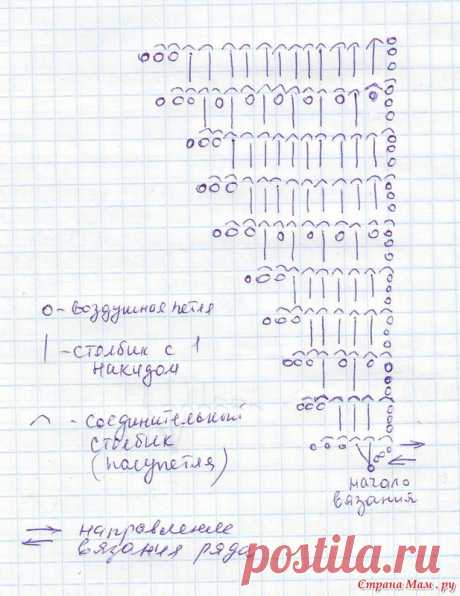 o - воздушная петля
| - столбик с 1
накидом
⌒ - соединительный
столбик
(полупетля)
начало
вязания
→ направление
← вязания ряда
postila.ru
Страна Мам.ру